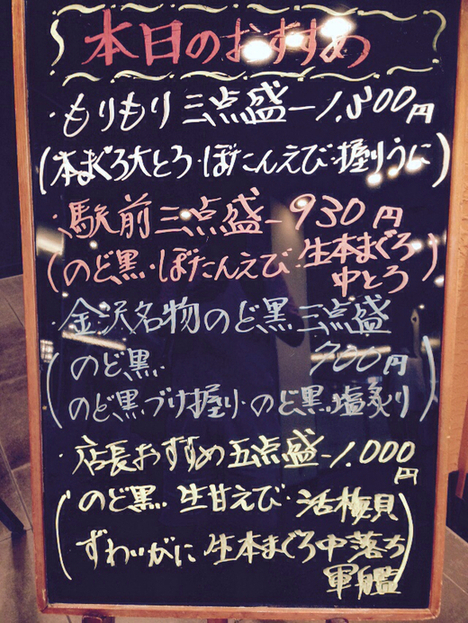 本日のおすすめ
・もりもり三点盛ー1,300円
(本まぐろ大とろ・ぼたんえび・握りうに)
・駅前三点盛ー930円
(のど黒・ぼたんえび・生本まぐろ
中とろ)
・金沢名物のど黒三点盛
(のど黒・ 700円
のど黒づけ握り・のど黒塩炙り)
・店長おすすめ五点盛ー1,000
円
(のど黒・生甘えび・活梅貝
ずわいがに 生本まぐろ中落ち
軍艦)